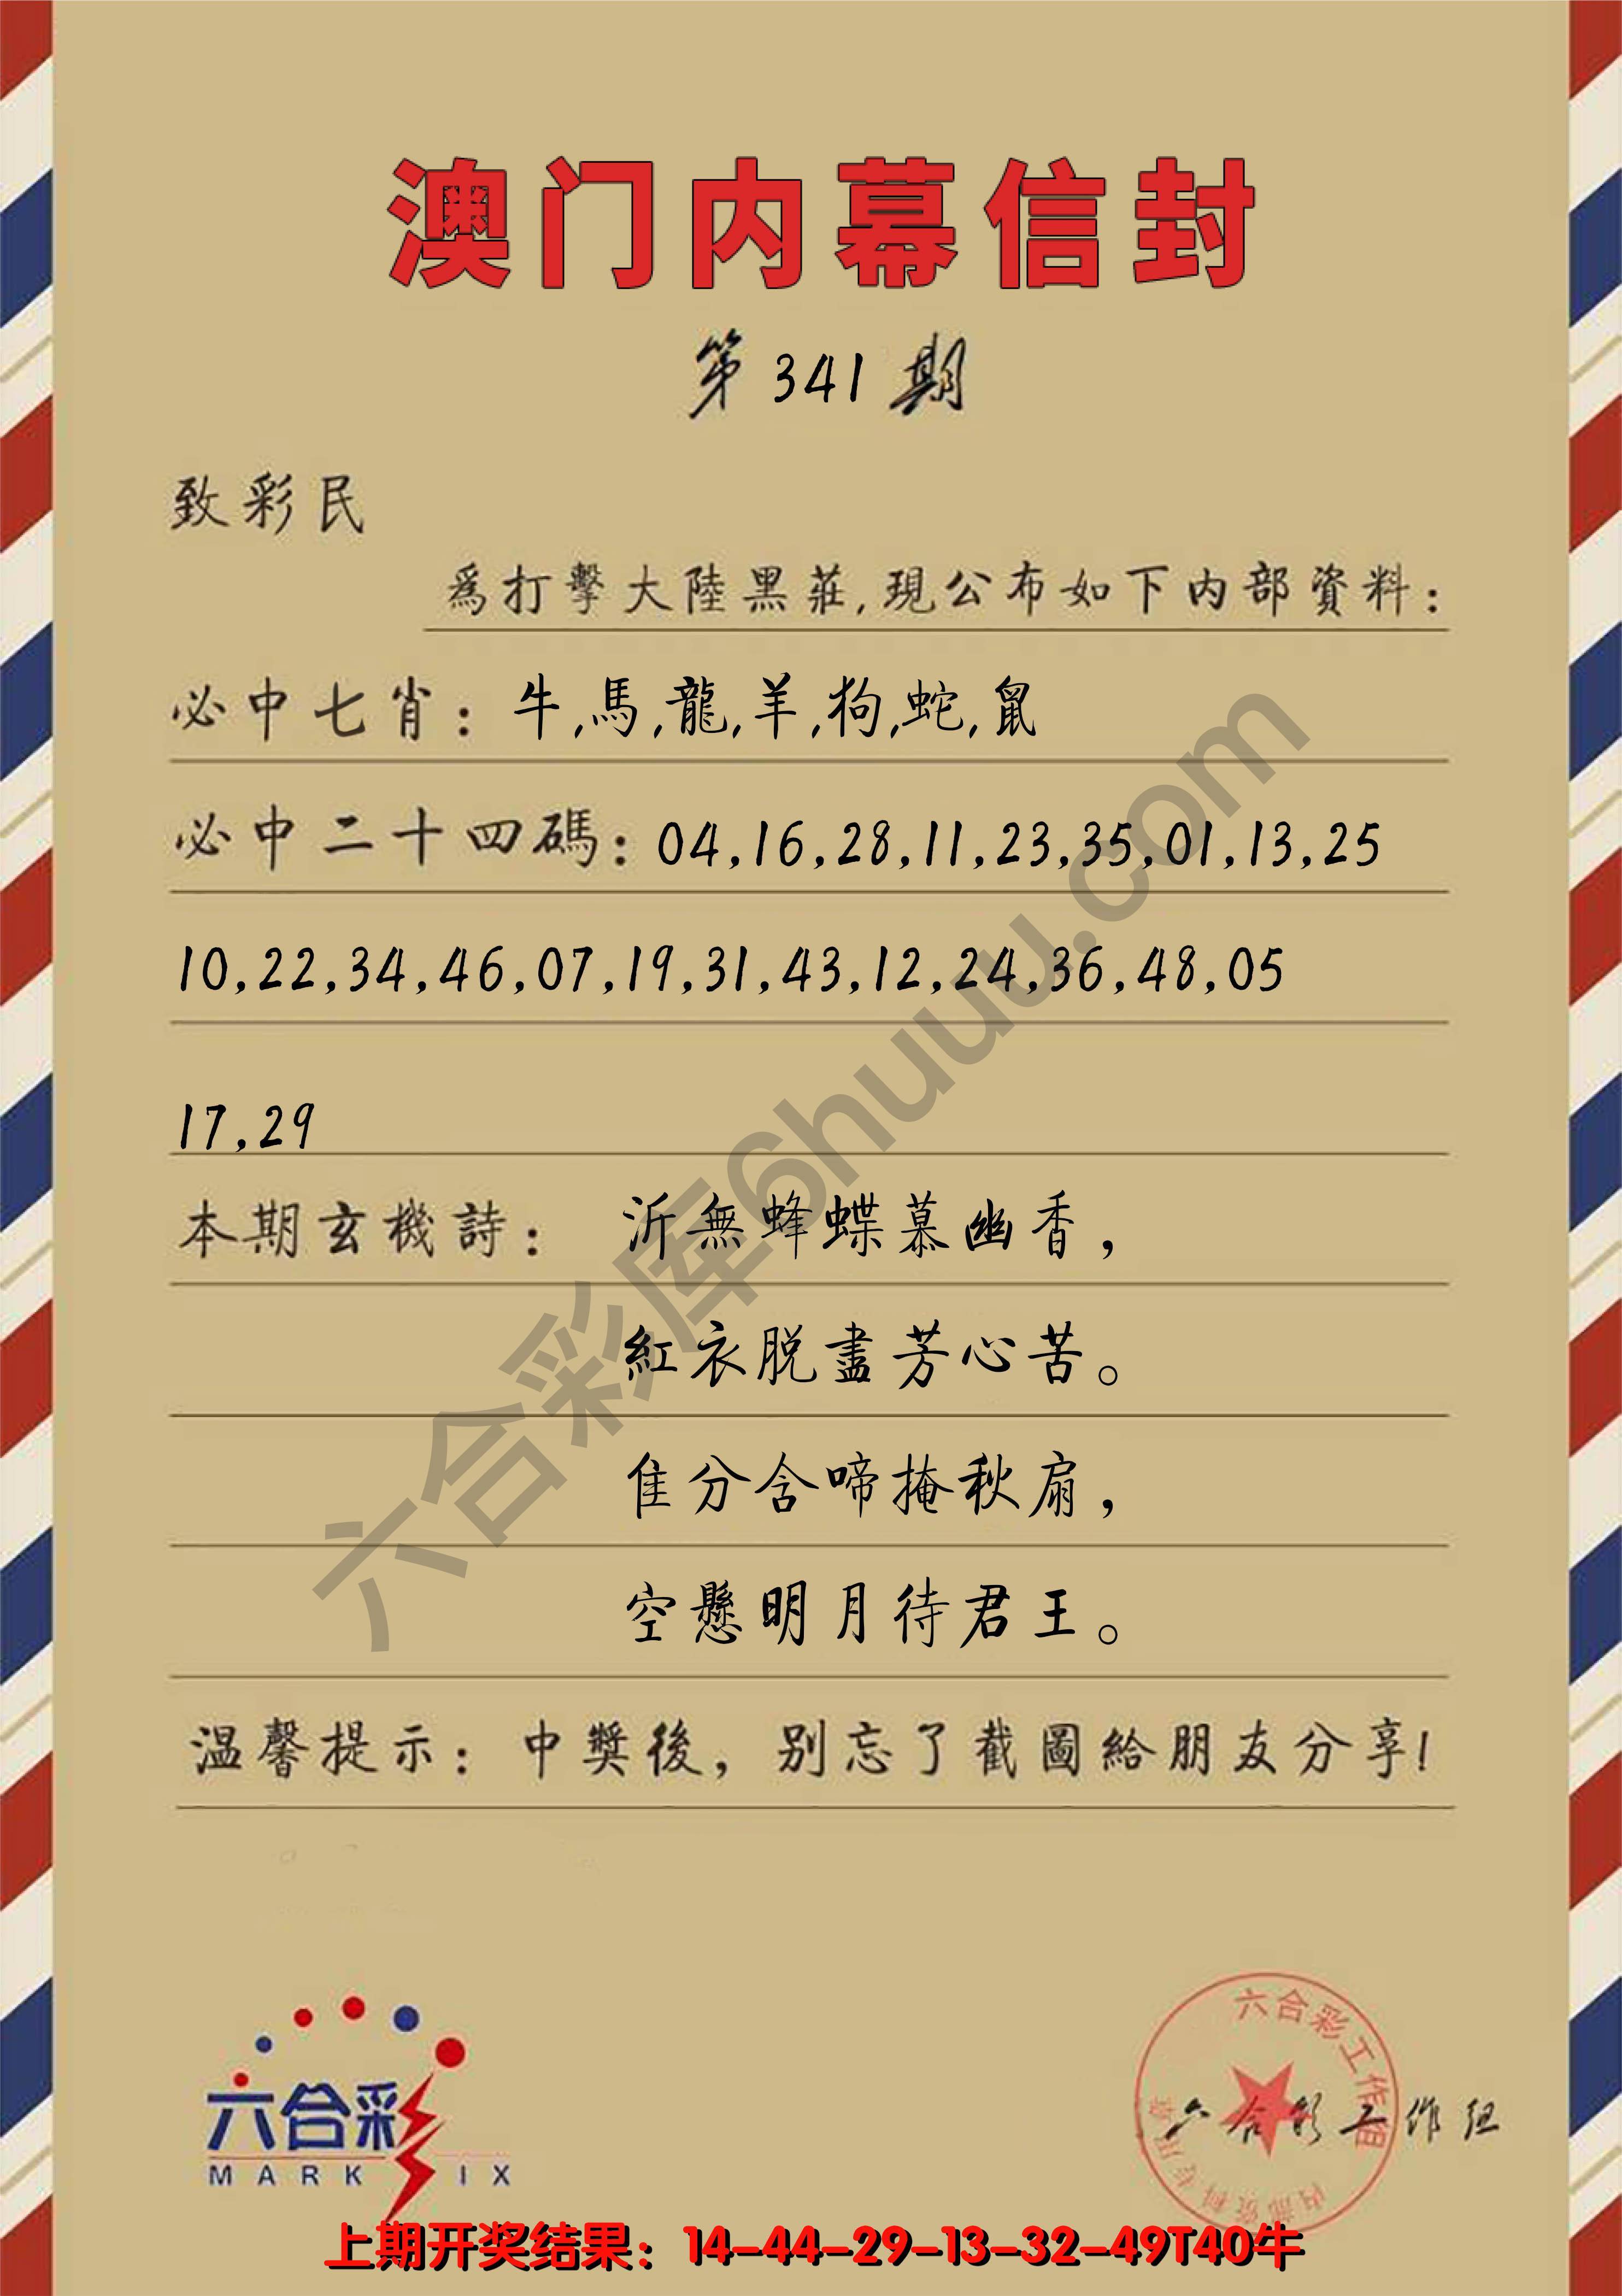 澳门内幕信封
第 341 期
致彩民
爲打擊大陸黑莊,現公布如下内部資料:
必中七肖: 牛,馬,龍,羊,狗,蛇,鼠
必中二十四碼: 04,16,28,11,23,35,01,13,25
10,22,34,46,07,19,31,43,12,24,36,48,05
17,29
本期玄機詩: 沂無蜂蝶慕幽香,
紅衣脱盡芳心苦。
隹分含啼掩秋扇,
空懸明月待君王。
温馨提示: 中獎後, 别忘了截圖給朋友分享!
六合彩库6huuu.com
六合彩
MARK IX
六合彩工作组
内部资料专用章
六合彩工作组
上期开奖结果: 14-44-29-13-32-49T40牛